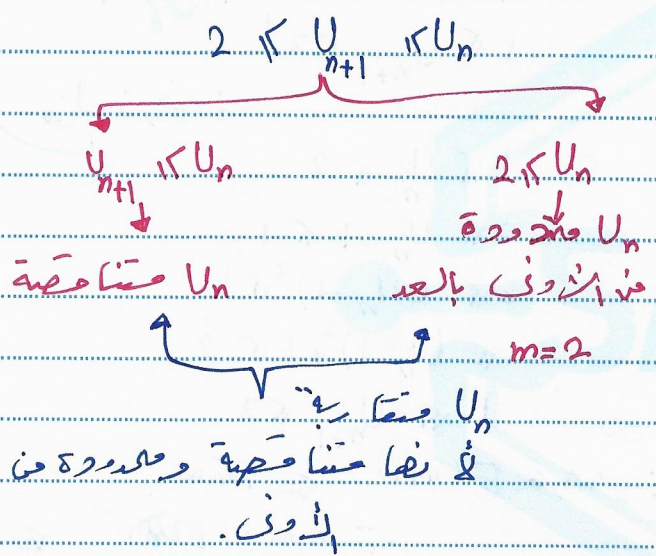 2 ≤ U_{n+1} ≤ U_n
U_{n+1} ≤ U_n
2 ≤ U_n
U_n محدودة
من الأدنى بالعدد
U_n متناقصة
m=2
U_n متقاربة
لأنها متناقصة ومحدودة من
الأدنى.